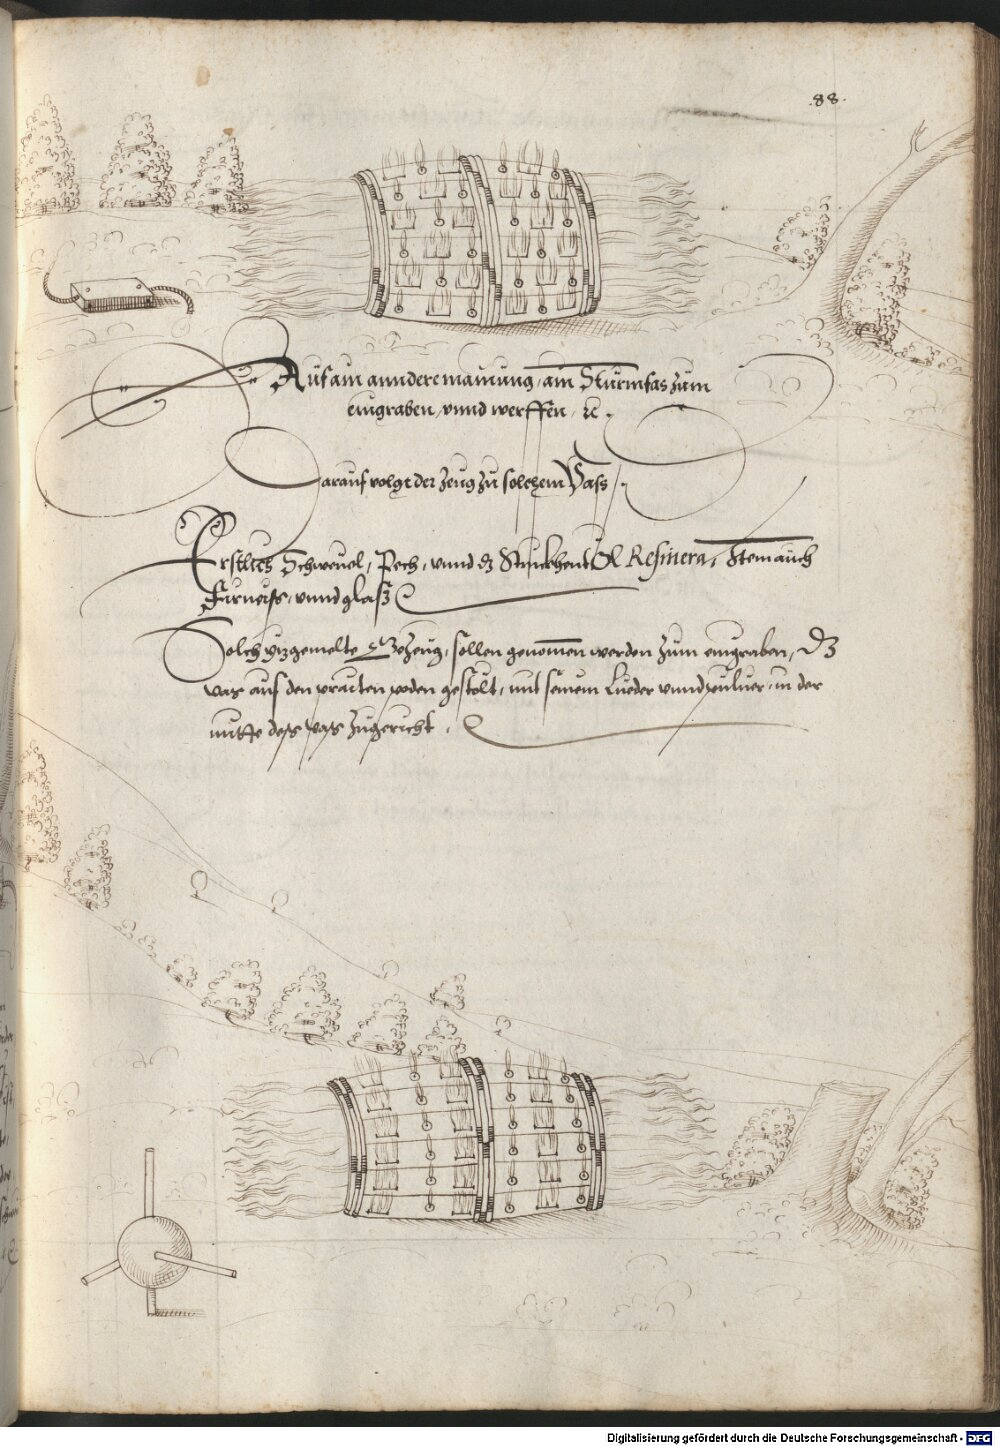 .88.
Auf ain anndere mainung, ain Sturmfas zum
eingraben, vnnd werffen, &c.
Darauf volgt der zeug zu solchem Vass,
Erstlich Schwevel, Pech, vnnd dz Stinckhent Öl Resinera, Item auch
Firneiss, vnnd glaß
Solch yzgemelte Gezeug, sollen genomen werden zum eingraben, Dz
vas auf den praiten poden gestölt, mit seinem Lueder vnnd puluer, in der
mitte dess vass zugericht.
Digitalisierung gefördert durch die Deutsche Forschungsgemeinschaft - DFG